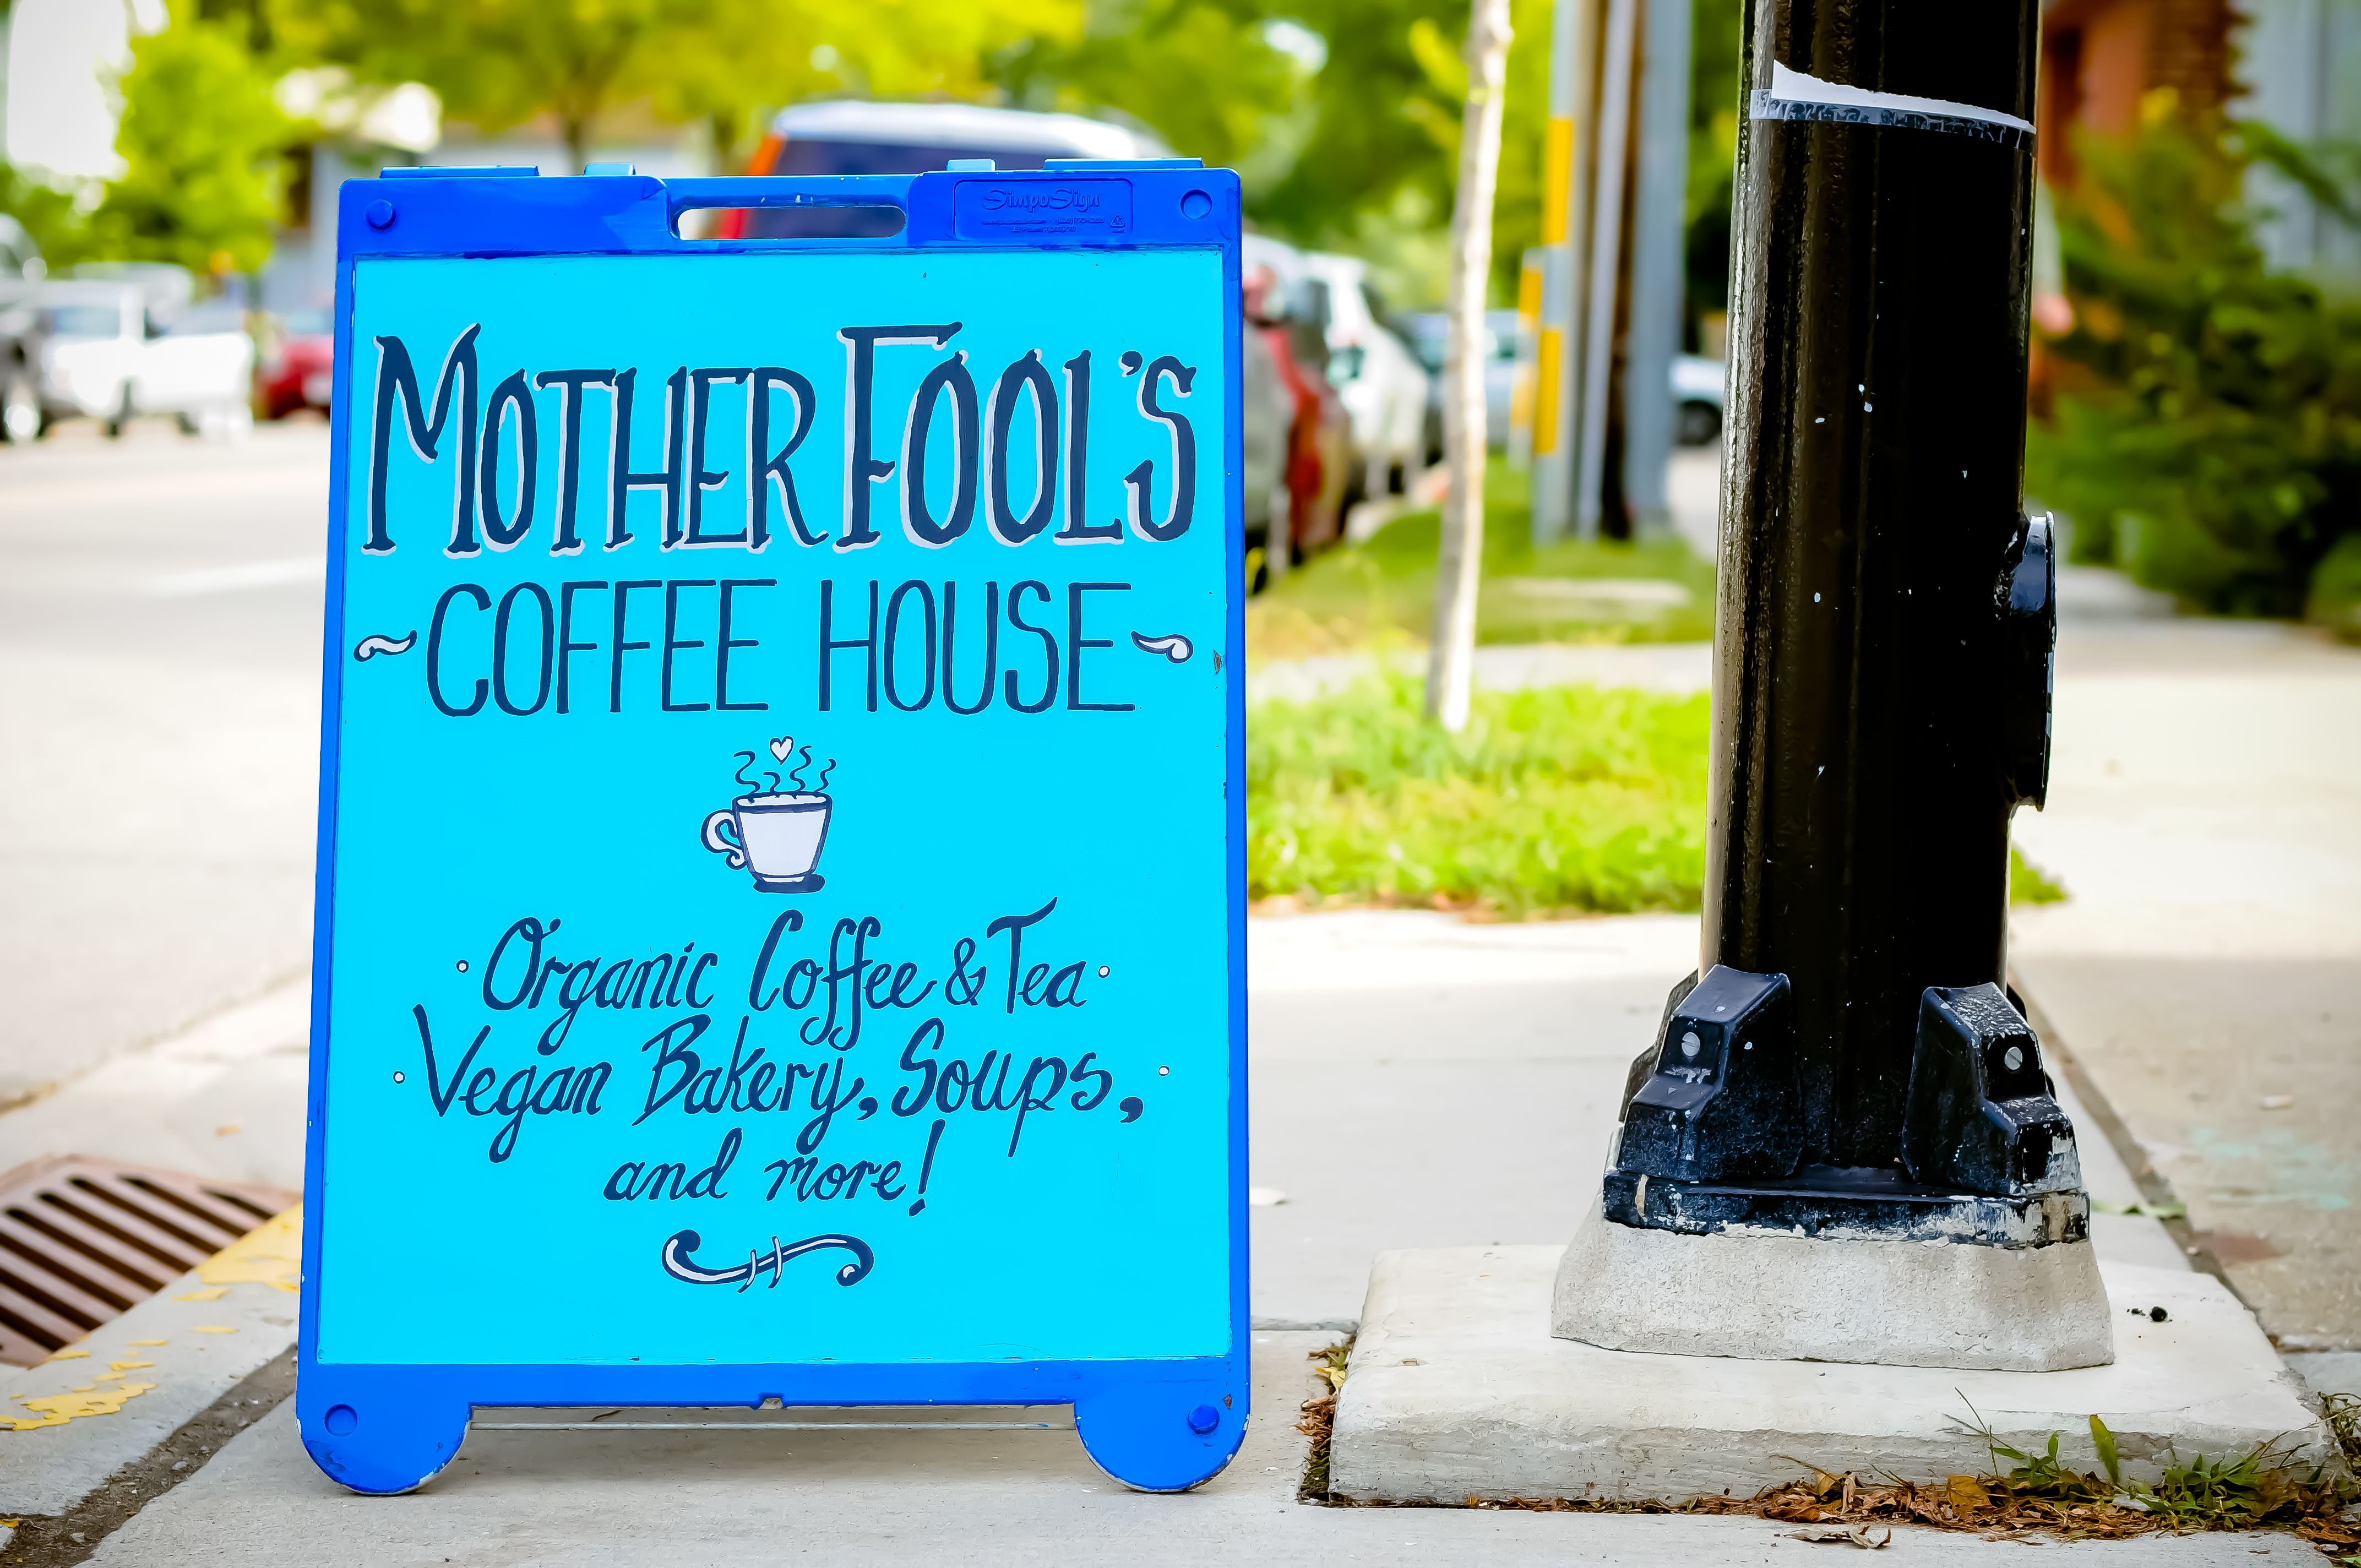 SimpoSign
MOTHER FOOL'S
COFFEE HOUSE
Organic Coffee & Tea
Vegan Bakery, Soups,
and more!